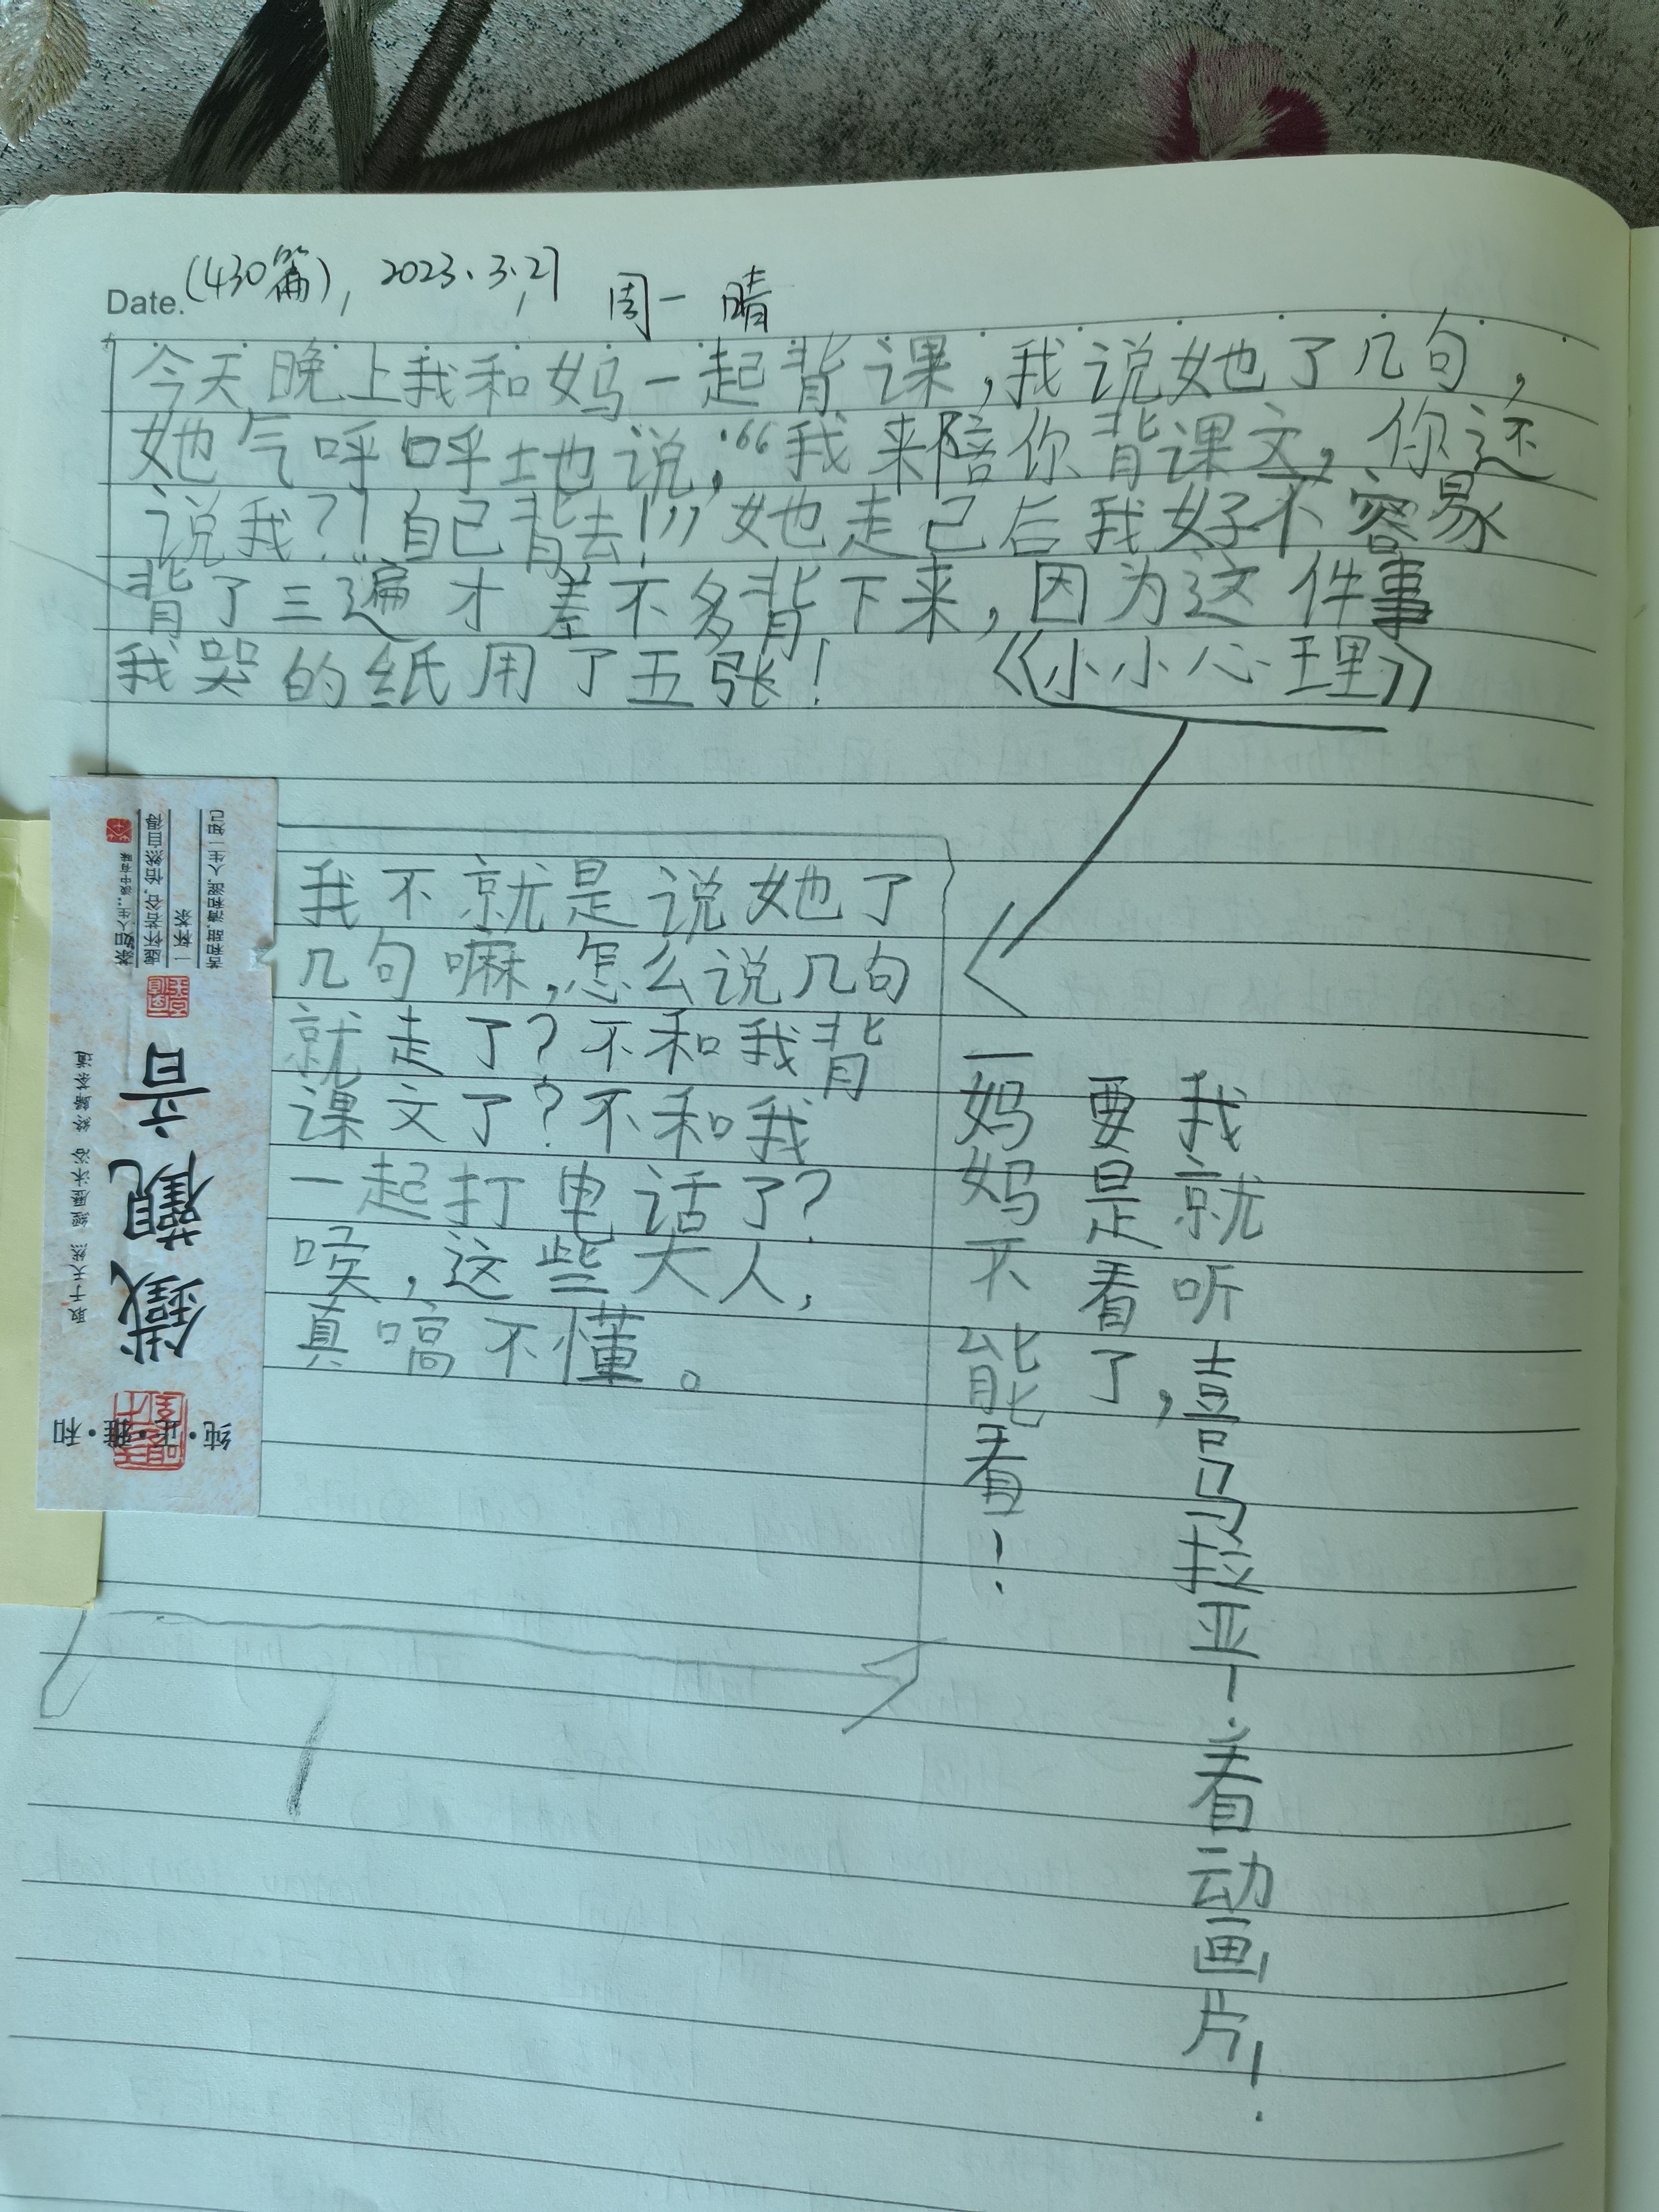 Date. (430篇), 2023.3.27 周一 晴
今天晚上我和妈一起背课,我说她了几句,
她气呼呼地说:“我来陪你背课文,你还
说我?!自己背去!”她走已后我好不容易
背了三遍才差不多背下来,因为这件事
我哭的纸用了五张!《小小心理》
我不就是说她了
几句嘛,怎么说几句
就走了?不和我背
课文了?不和我
一起打电话了?
唉,这些大人,
真嗃不懂。
一妈妈不能看!
要是看了,
我就听喜马拉亚!看动画片!
鐵觀音
纯·正·雅·和